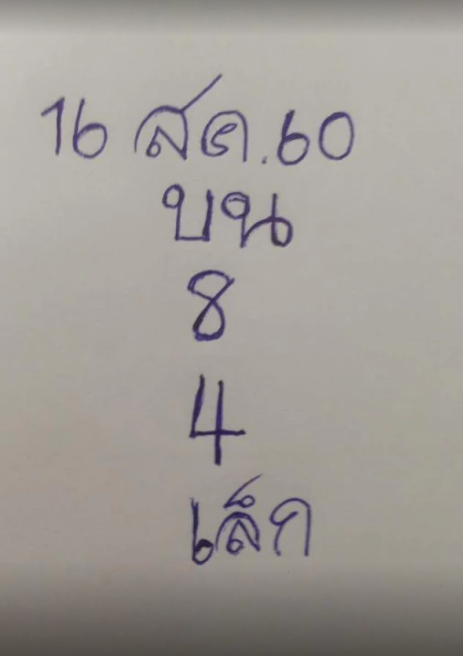 16 สค.60
บน
8
4
เล็ก